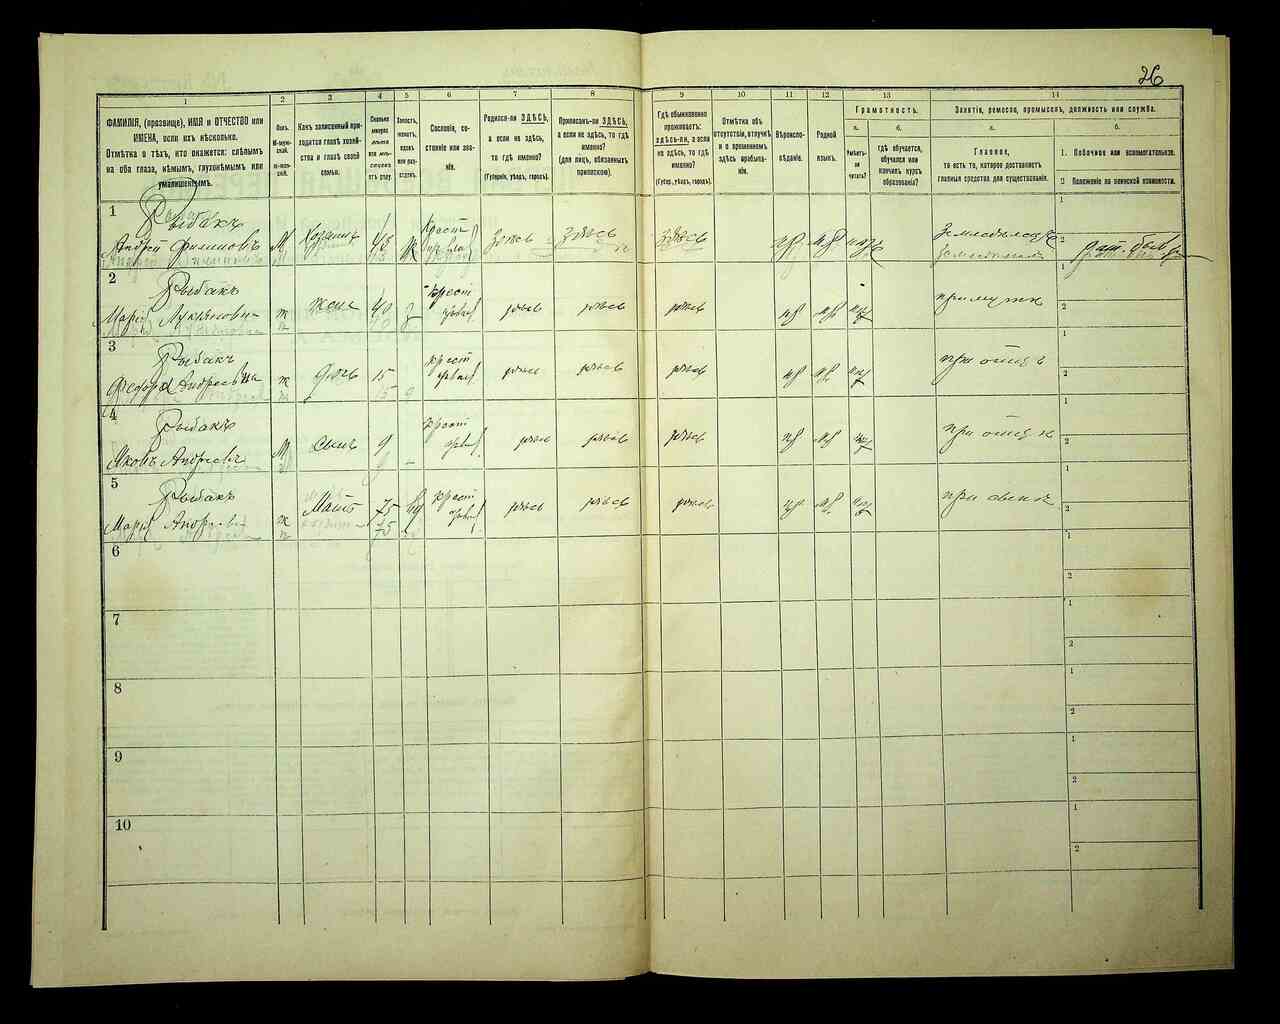 26
1
2
3
4
5
6
7
8
9
10
11
12
13
14
ФАМИЛІЯ, (прозвище), ИМЯ и ОТЧЕСТВО или
ИМЕНА, если ихъ нѣсколько.
Отмѣтка о тѣхъ, кто окажется: слѣпымъ
на оба глаза, нѣмымъ, глухонѣмымъ или
умалишеннымъ.
Полъ.
М-муж-
ской.
Ж-жен-
ской.
Какъ записанный при-
ходится главѣ хозяй-
ства и главѣ своей
семьи.
Сколько
минуло
лѣтъ
или мѣ-
сяцевъ
отъ роду.
Холостъ,
женатъ,
вдовъ
или раз-
веденъ.
Сословіе, со-
стояніе или зва-
ніе.
Родился-ли ЗДѢСЬ,
а если не здѣсь,
то гдѣ именно?
(Губернія, уѣздъ, городъ).
Приписанъ-ли ЗДѢСЬ,
а если не здѣсь, то гдѣ
именно?
(для лицъ, обязанныхъ
припискою).
Гдѣ обыкновенно
проживаетъ:
здѣсь-ли, а если
не здѣсь, то гдѣ
именно?
(Губер., уѣздъ, городъ).
Отмѣтка объ
отсутствіи, отлучкѣ
и о временномъ
здѣсь пребыва-
ніи.
Вѣроиспо-
вѣданіе.
Родной
языкъ.
Грамотность.
а.
Умѣетъ-
ли
читать?
б.
гдѣ обучается,
обучался или
кончилъ курсъ
образованія?
Занятіе, ремесло, промыселъ, должность или служба.
а.
Главное,
то есть то, которое доставляетъ
главныя средства для существованія.
б.
1. Побочное или вспомогательное.
2. Положеніе по воинской повинности.
1
Рыбакъ
Андрей Филиповъ
М
Хозяинъ
43
Ж
Крест
здѣсь
здѣсь
здѣсь
Земледѣлецъ
1
2
2
Рыбакъ
Лукьянови
ж
жена
40
З
Крест
здѣсь
здѣсь
здѣсь
при мужѣ
1
2
3
Рыбакъ
Федора Андреевна
ж
дочь
15
крест
здѣсь
здѣсь
здѣсь
при отцѣ
1
2
4
Рыбакъ
Яковъ Андреевъ
М
сынъ
9
крест
здѣсь
здѣсь
здѣсь
при отцѣ
1
2
5
Рыбакъ
Андреева
ж
Мать
75
крест
здѣсь
здѣсь
здѣсь
при сынѣ
1
2
6
1
2
7
1
2
8
1
2
9
1
2
10
1
2